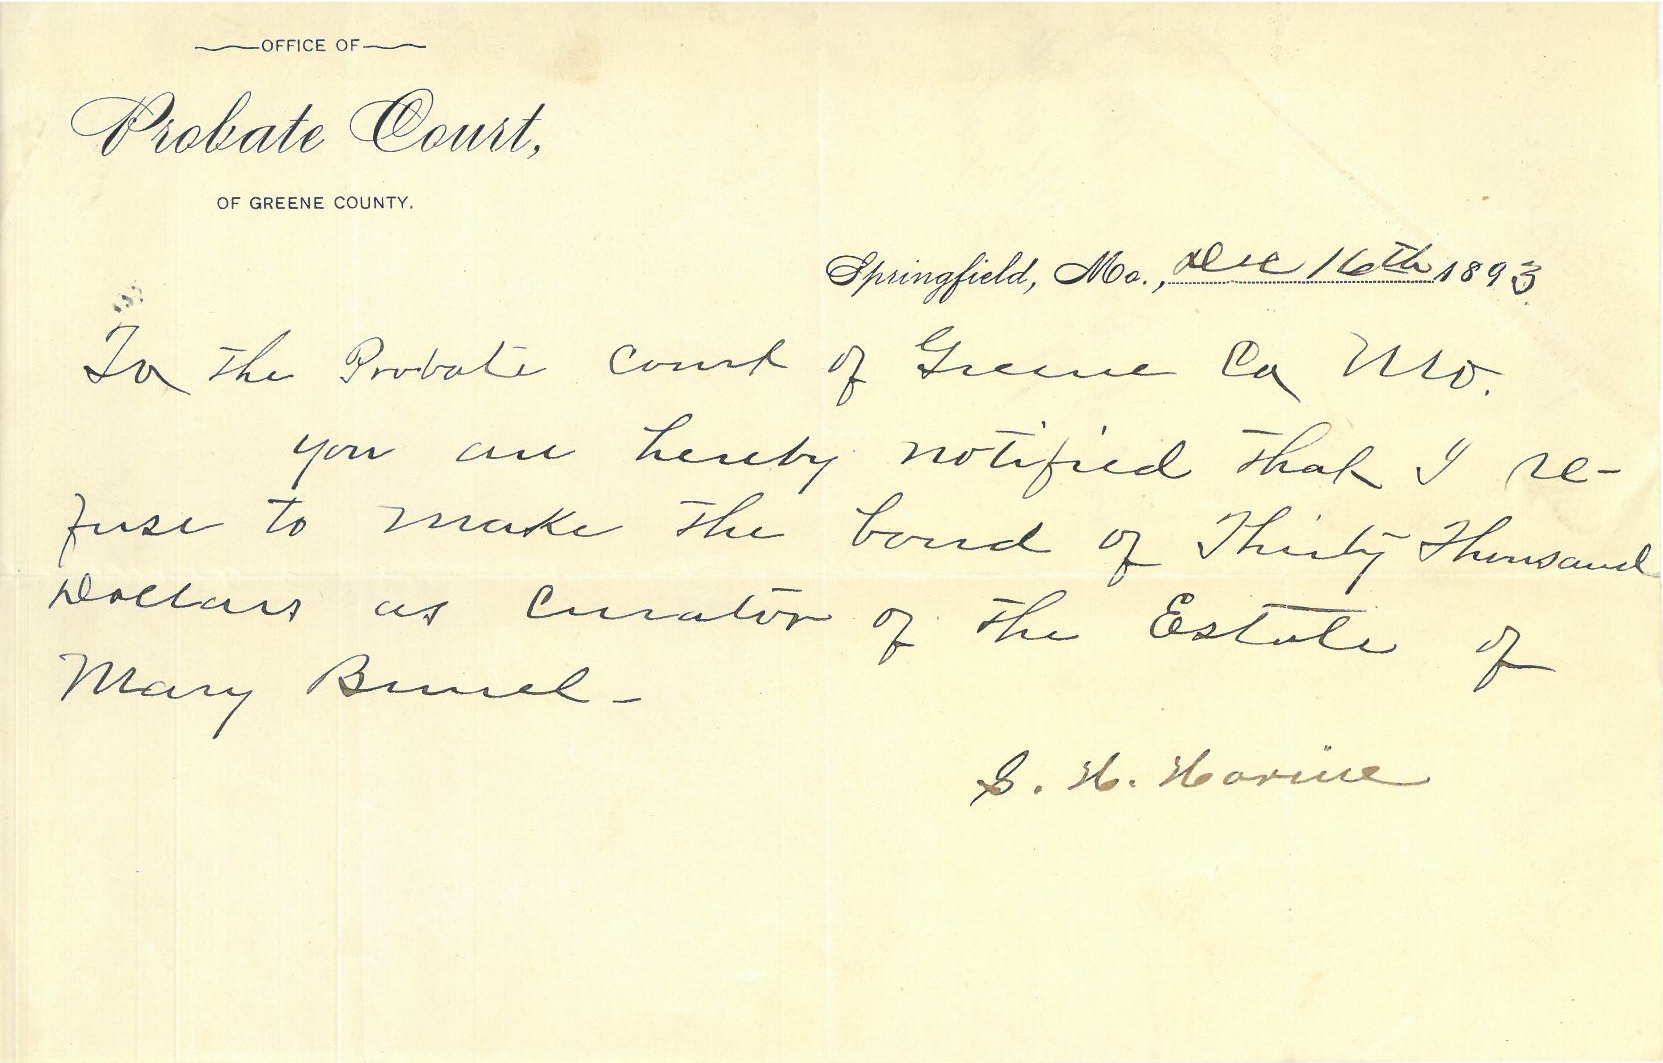 OFFICE OF
Probate Court,
OF GREENE COUNTY.
Springfield, Mo., Dec 16th 1893
To the Probate Court of Greene Co Mo.
you are hereby notified that I re-
fuse to make the bond of Thirty Thousand
Dollars as Curator of the Estate of
Mary -
S. H.